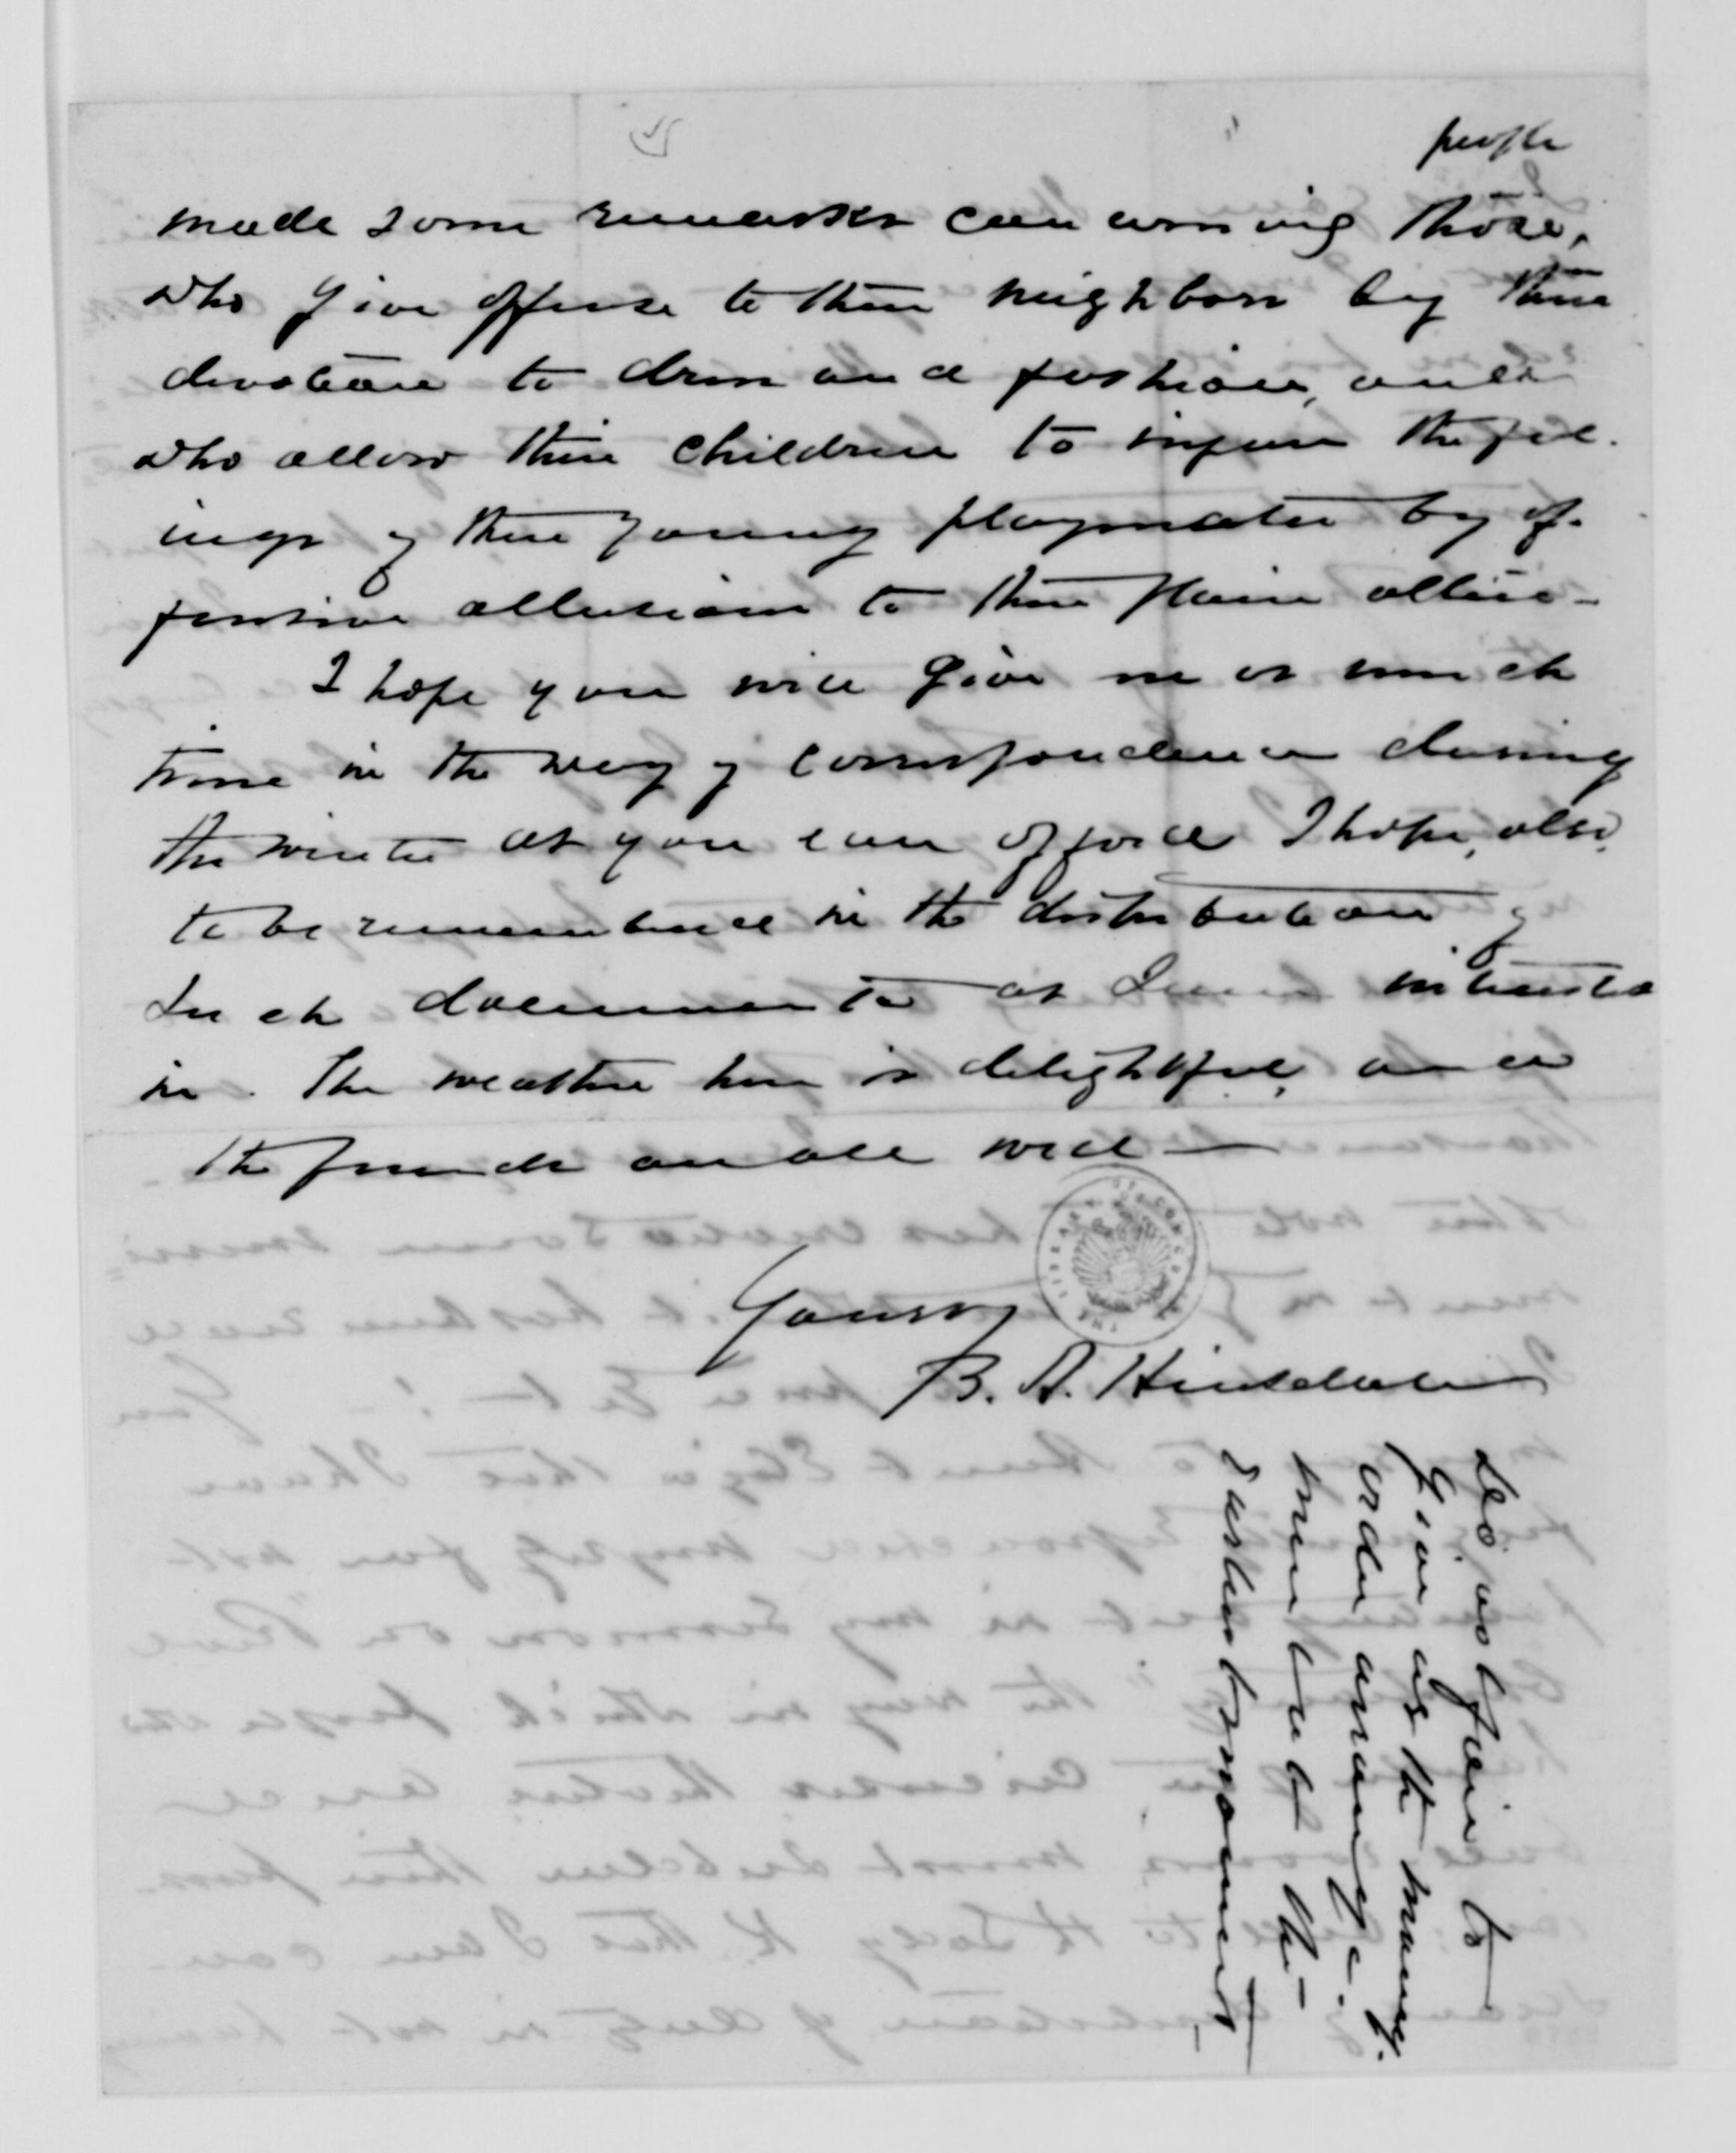 people
made some remarks concerning those,
who give offense to their neighbors by their
devotion to dress and fashion, and
who allow their children to injure the feel-
ings of their young playmates by of-
fensive allusions to their plain attire-
I hope you will give me as much
time in the way of correspondence during
the winter as you can afford I hope, also,
to be remembered in the distribution of
such documents as I am interested
in. The weather here is delightful, and
the friends are all well—
Yours
B. A. Hinsdale
Do not fail to
give us the
order arrange.
ment at the
earliest moment